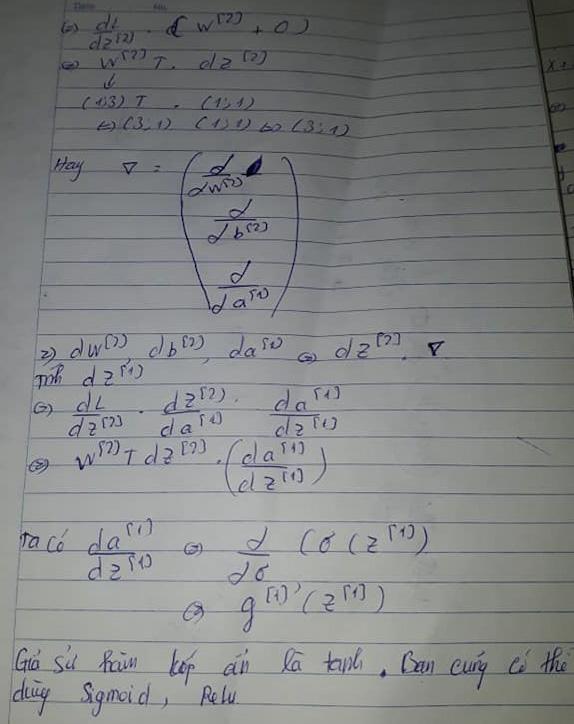 ⇔ dL/dz^[2] . (w^[2] + 0)
⇔ w^[2] T . dz^[2]
↓
(1;3) T . (1;1)
⇔ (3;1) (1;1) ⇔ (3;1)
Hay ∇ = ( d/dw^[2]
d/db^[2]
d/da^[1] )
2) dw^[2], db^[2], da^[1] ⇔ dz^[2] . ∇
Tính dz^[1]
⇔ dL/dz^[2] . dz^[2]/da^[1] . da^[1]/dz^[1]
⇔ w^[2] T dz^[2] . (da^[1]/dz^[1])
Ta có da^[1]/dz^[1] ⇔ d/dσ (σ (z^[1])
⇔ g^[1]' (z^[1])
Giả sử hàm lớp ẩn là tanh. Bạn cũng có thể
dùng Sigmoid, Relu